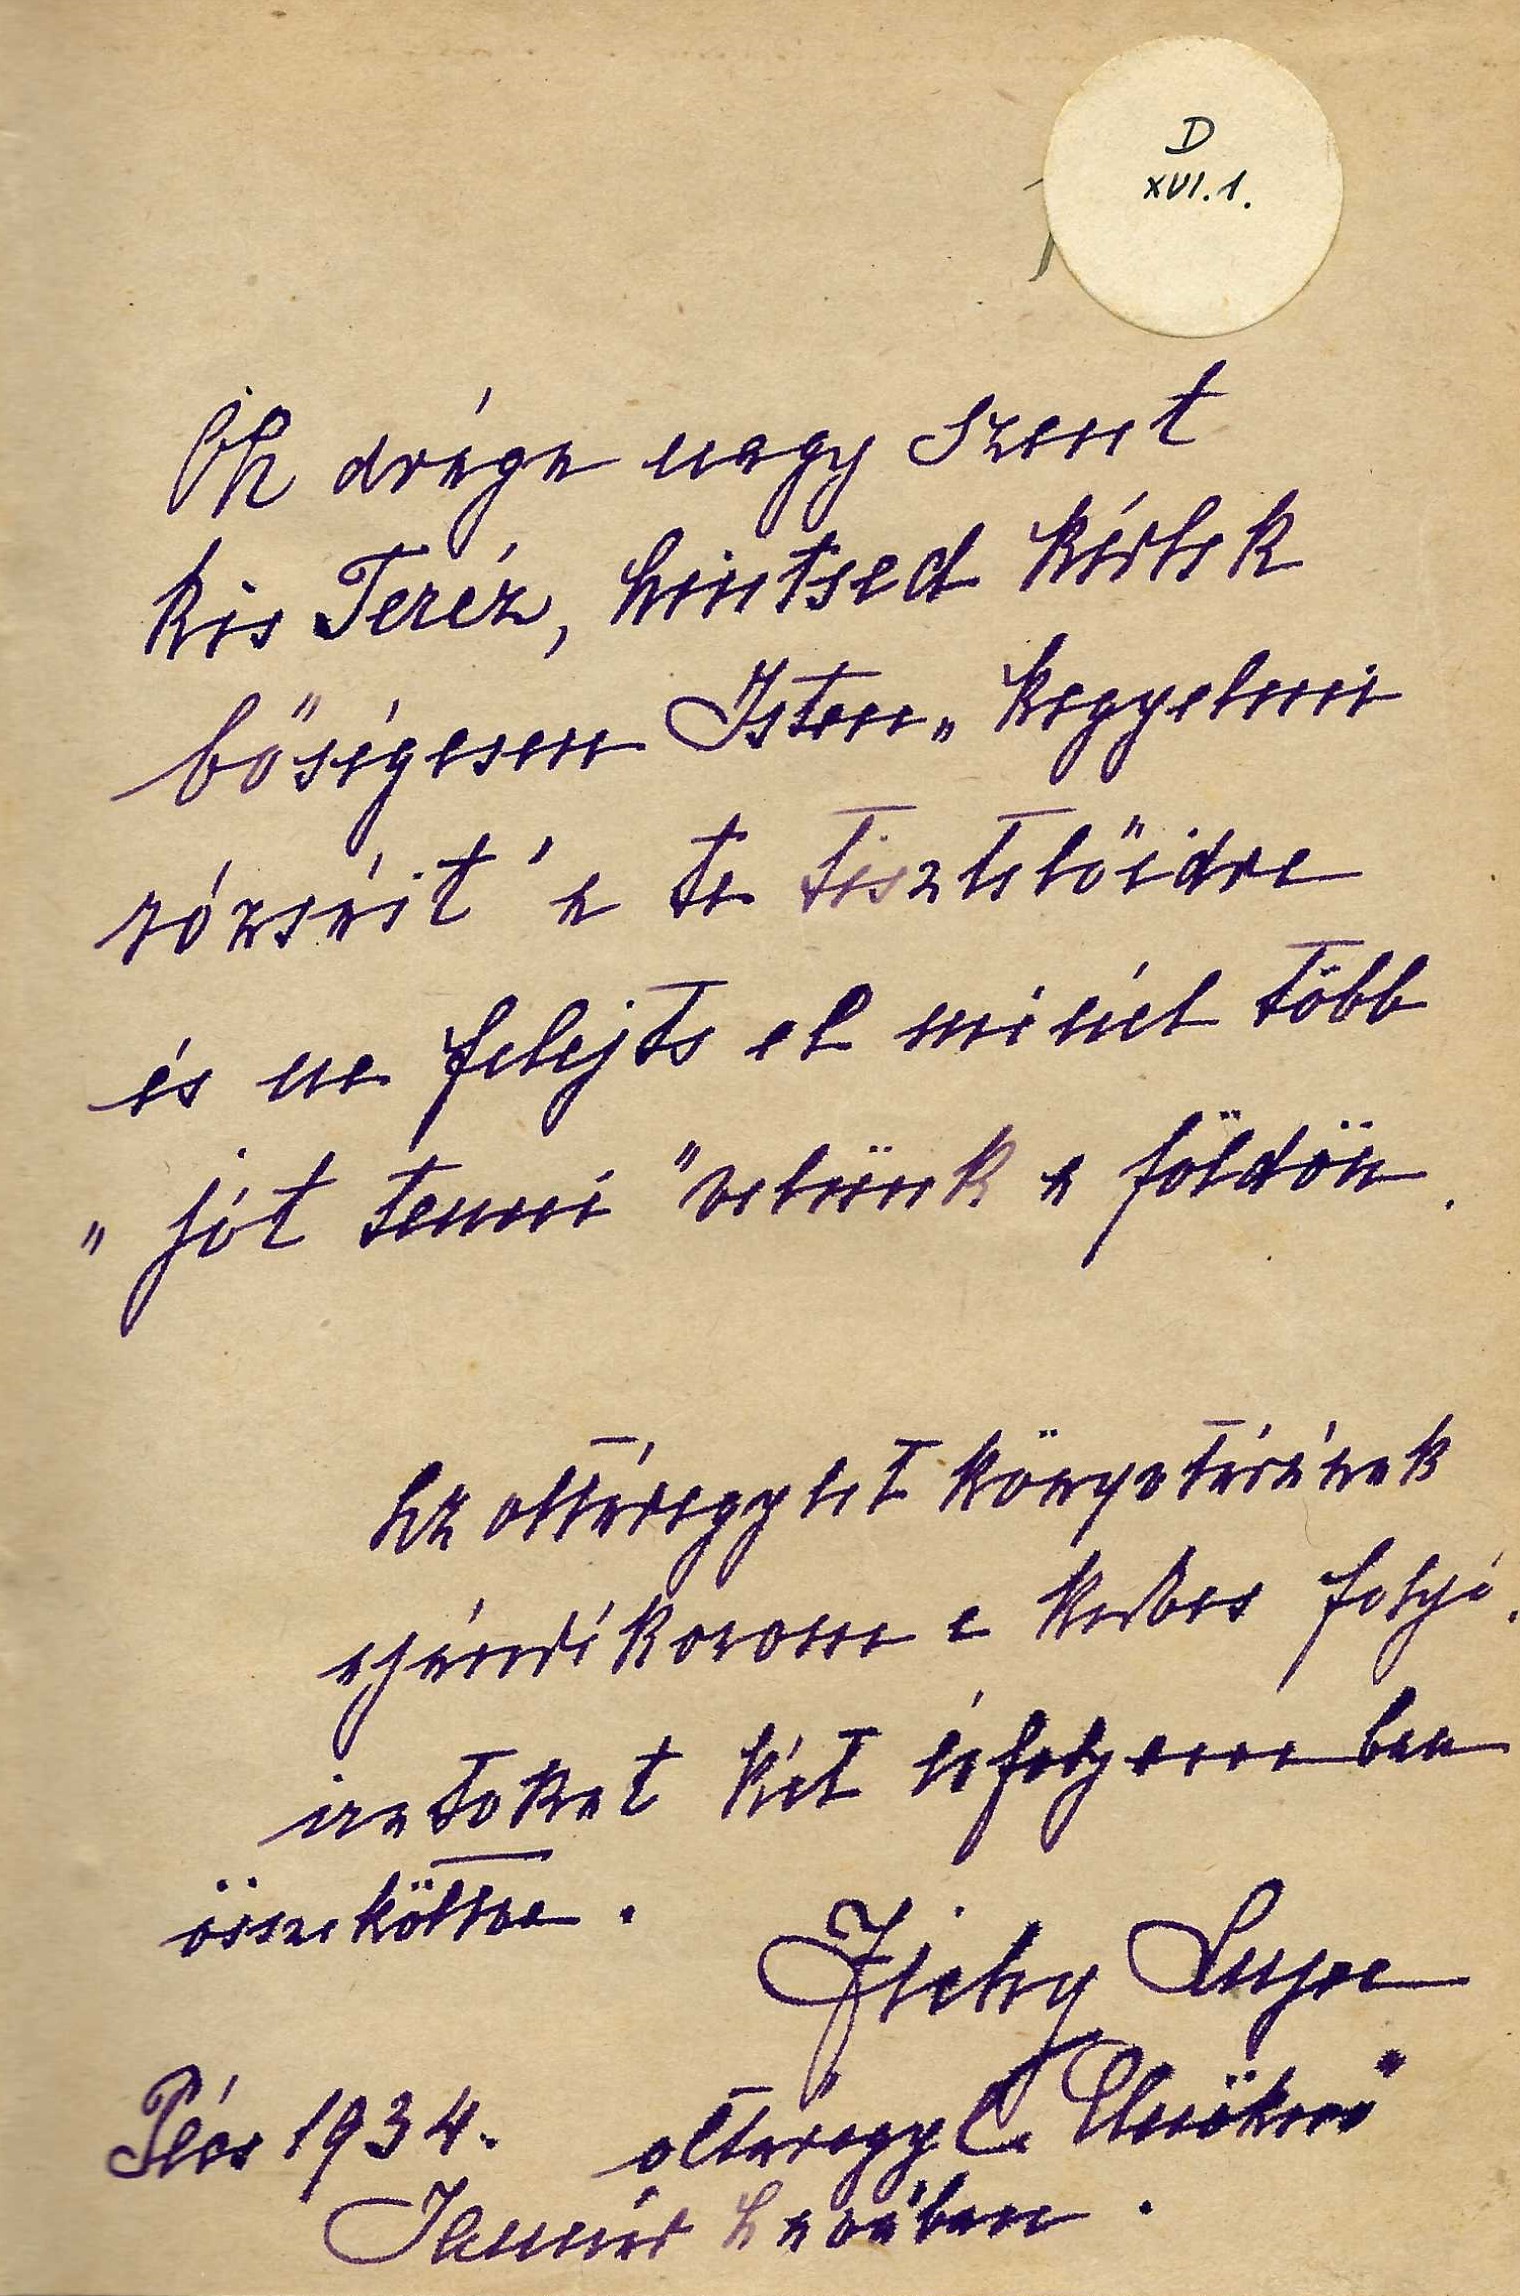 D
XVI. 1.
Óh drága nagy Szent
kis Teréz, hintsed kérlek
bőségesen Isten „kegyelmi
rózsáit" a te tisztelőidre
és ne felejts el minél több
„jót tenni" velünk a földön.
Az oltáregylet könyvtárának
ajándékozom e kedves folyó,
iratokat két évfolyamban
összekötve.
Zichy Lujza
oltáregyl. Elnöknő
Pécs 1934.
Január havában.